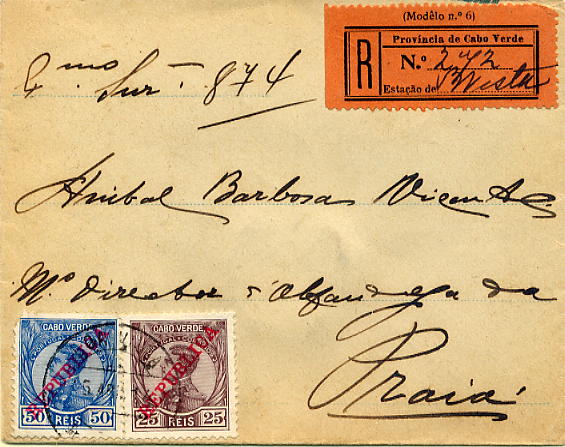 (Modêlo n.º 6)
Província de Cabo Verde
R
N.º 272
Estação de B Vista
Exmo Snr - 874
Anibal Barbosa Vicente
Mº Director d'Alfandega da
Praia
CABO VERDE
REPUBLICA
50 REIS 50
CABO VERDE
REPUBLICA
25 REIS 25